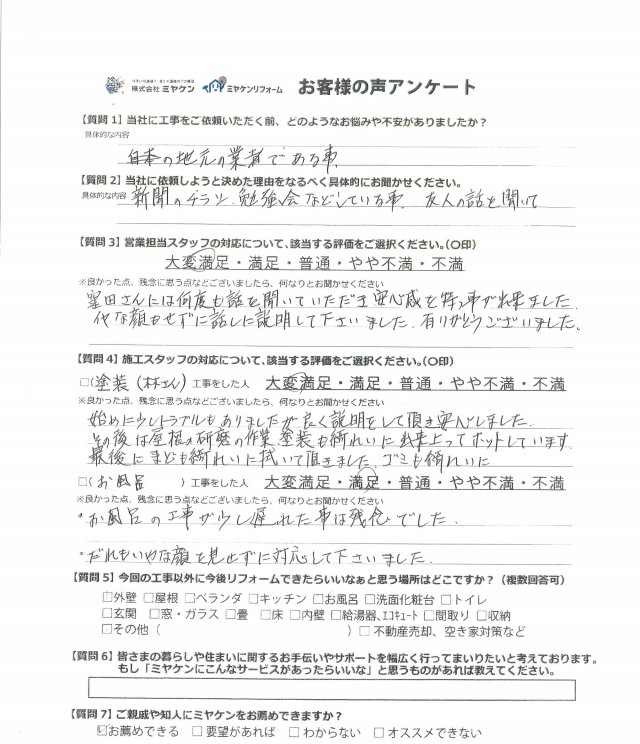 株式会社 ミヤケン ミヤケンリフォーム お客様の声アンケート
【質問 1】当社に工事をご依頼いただく前、どのようなお悩みや不安がありましたか？
具体的な内容
の地元の業者である事
【質問 2】当社に依頼しようと決めた理由をなるべく具体的にお聞かせください。
具体的な内容 新聞のチラシ、勉強会などしている事、友人の話を聞いて
【質問 3】営業担当スタッフの対応について、該当する評価をご選択ください。（〇印）
大変満足・満足・普通・やや不満・不満
※良かった点、残念に思う点などございましたら、何なりとお聞かせください
窪田さんには何度も話を聞いていただき安心感を持つ事が出来ました。
な顔もせずに話しに説明して下さいました。有りがとうございました、
【質問 4】施工スタッフの対応について、該当する評価をご選択ください。（〇印）
□（塗装（林さん） 工事をした人 大変満足・満足・普通・やや不満・不満
※良かった点、残念に思う点などございましたら、何なりとお聞かせください
始めに少しトラブルもありましたが良く説明をして頂き安心しました。
その後は屋根の研磨の作業、塗装も綺れいに出来上ってホットしています。
最後にまども綺れいに拭いて頂きました、ゴミも綺れいに
□（お風呂 ）工事をした人 大変満足・満足・普通・やや不満・不満
※良かった点、残念に思う点などございましたら、何なりとお聞かせください
・お風呂の工事が少し遅れた事は残念でした。
・だれもいやな顔を見せずに対応して下さいました。
【質問 5】今回の工事以外に今後リフォームできたらいいなぁと思う場所はどこですか？（複数回答可）
□外壁 □屋根 □ベランダ □キッチン □お風呂 □洗面化粧台 □トイレ
□玄関 □窓・ガラス □畳 □床 □内壁 □給湯器、エコキュート □間取り □収納
□その他（ ）□不動産売却、空き家対策など
【質問 6】皆さまの暮らしや住まいに関するお手伝いやサポートを幅広く行ってまいりたいと考えております。
もし「ミヤケンにこんなサービスがあったらいいな」と思うものがあれば教えてください。
【質問 7】ご親戚や知人にミヤケンをお薦めできますか？
☑お薦めできる □要望があれば □わからない □オススメできない